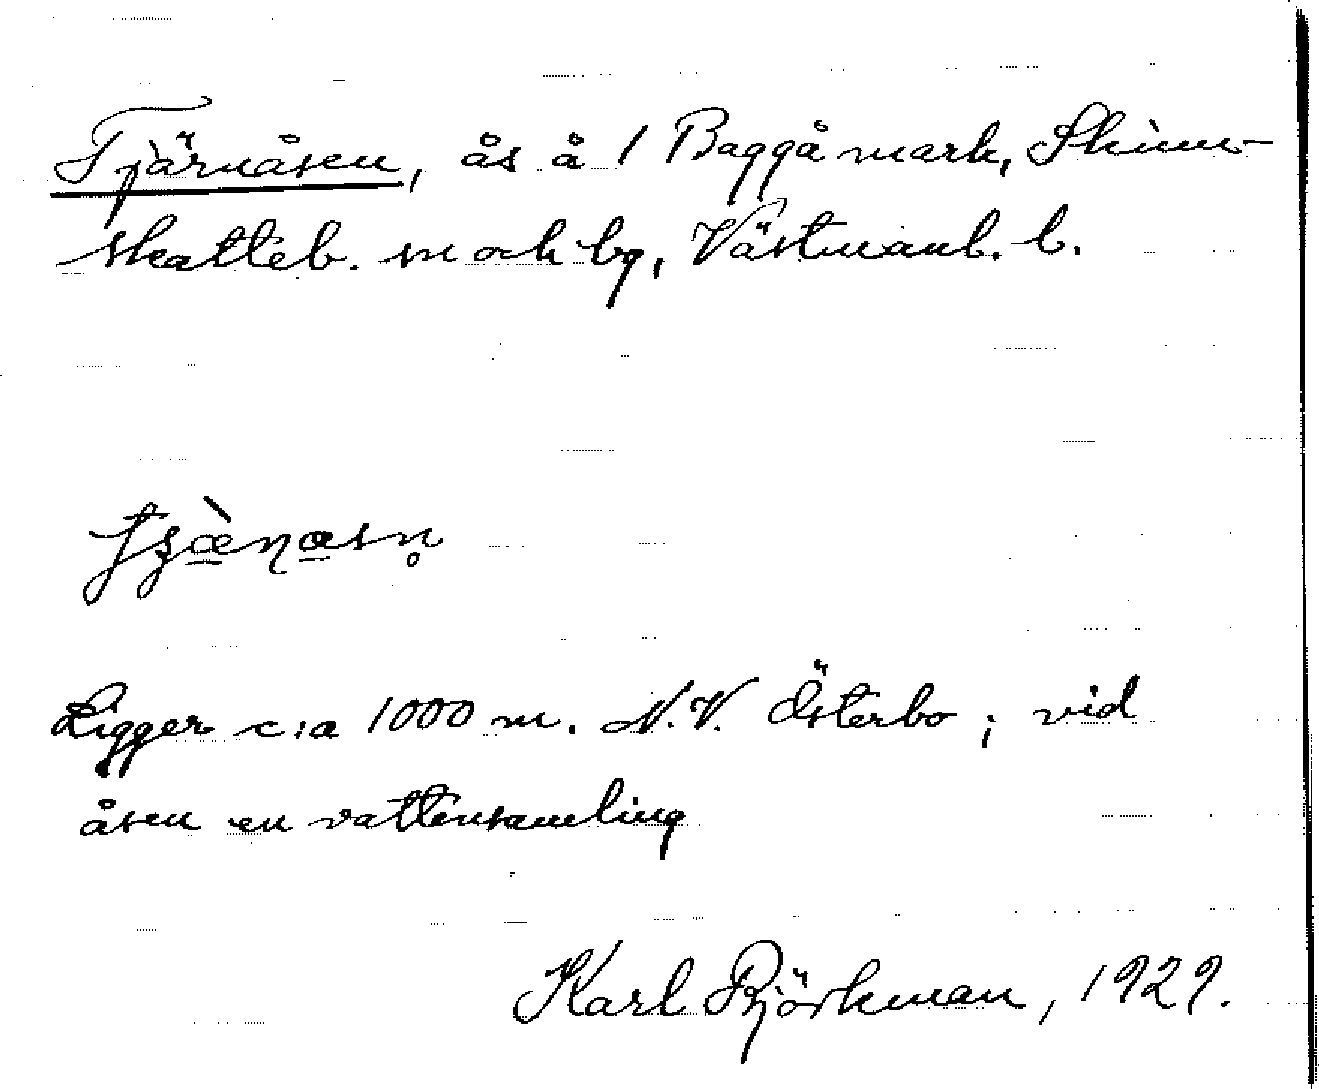 Tjärnåsen, ås å 1 Baggå mark, Skinn-
skatteb. sn och bg, Västmanl. l.
Ligger c:a 1000 m. N.V. Österbo ; vid
åsen en vattensamling
Karl Björkman, 1929.